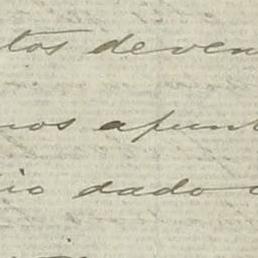 tos deven
nos apunt
io dado